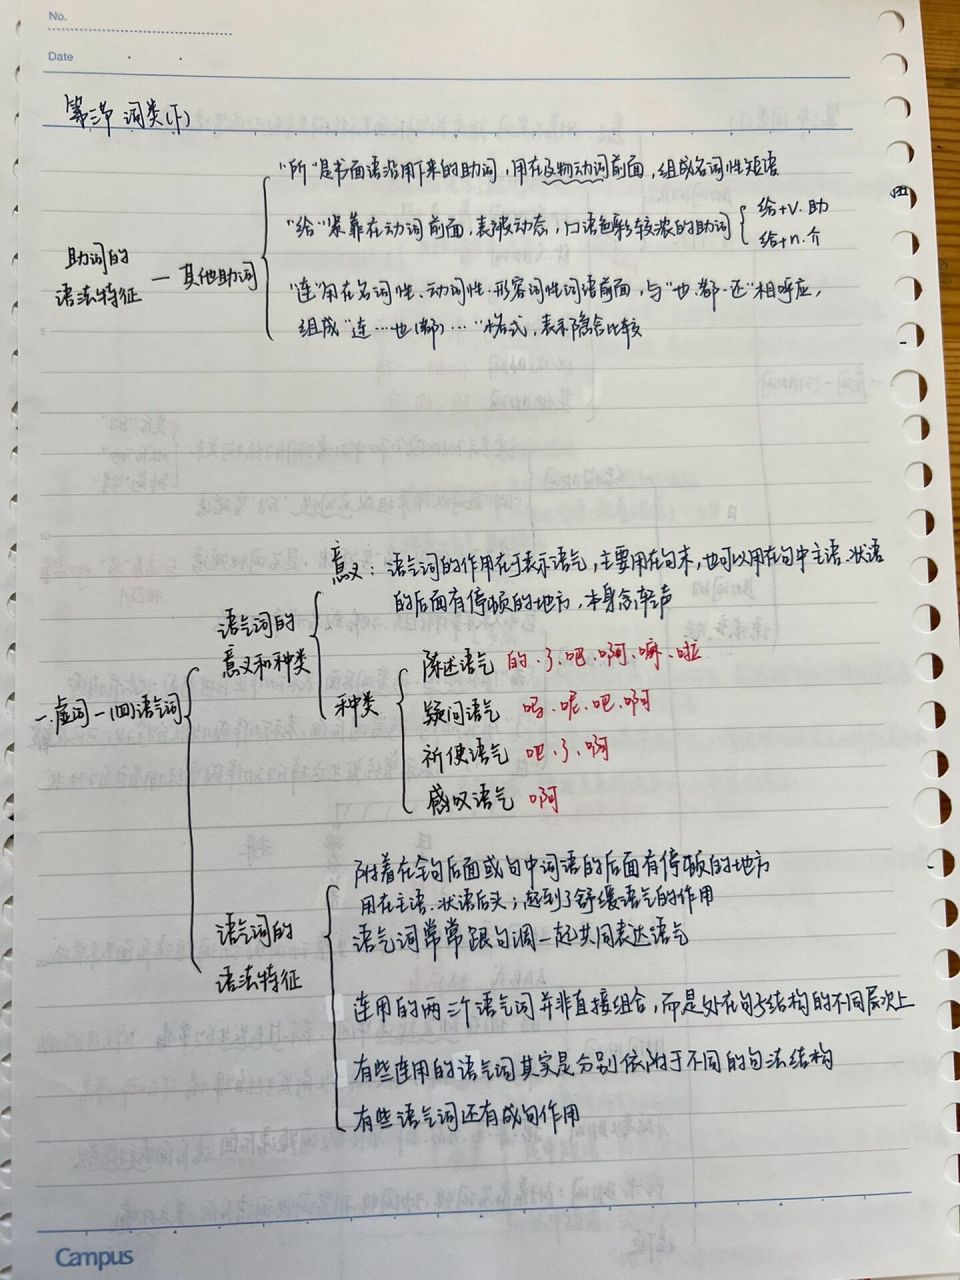 No.
Date
第三节 词类(下)
"所"是书面语沿用下来的助词，用在及物动词前面，组成名词性短语
"给"紧靠在动词前面，表被动态，口语色彩较浓的助词
给+V.助
给+n.介
助词的
语法特征
其他助词
"连"用在名词性、动词性、形容词性词语前面，与"也、都、还"相呼应，
组成"连…也(都)…"格式，表示隐含比较
意义：语气词的作用在于表示语气，主要用在句末，也可以用在句中主语、状语
的后面有停顿的地方，本身念轻声
语气词的
意义和种类
种类
陈述语气 的、了、吧、啊、嘛、啦
疑问语气 吗、呢、吧、啊
祈使语气 吧、了、啊
感叹语气 啊
一.虚词—(四)语气词
附着在全句后面或句中词语的后面有停顿的地方
用在主语、状语后头；起到了舒缓语气的作用
语气词常常跟句调一起共同表达语气
语气词的
语法特征
连用的两三个语气词并非直接组合，而是处在句子结构的不同层次上
有些连用的语气词其实是分别依附于不同的句法结构
有些语气词还有成句作用
5
10
20
Campus